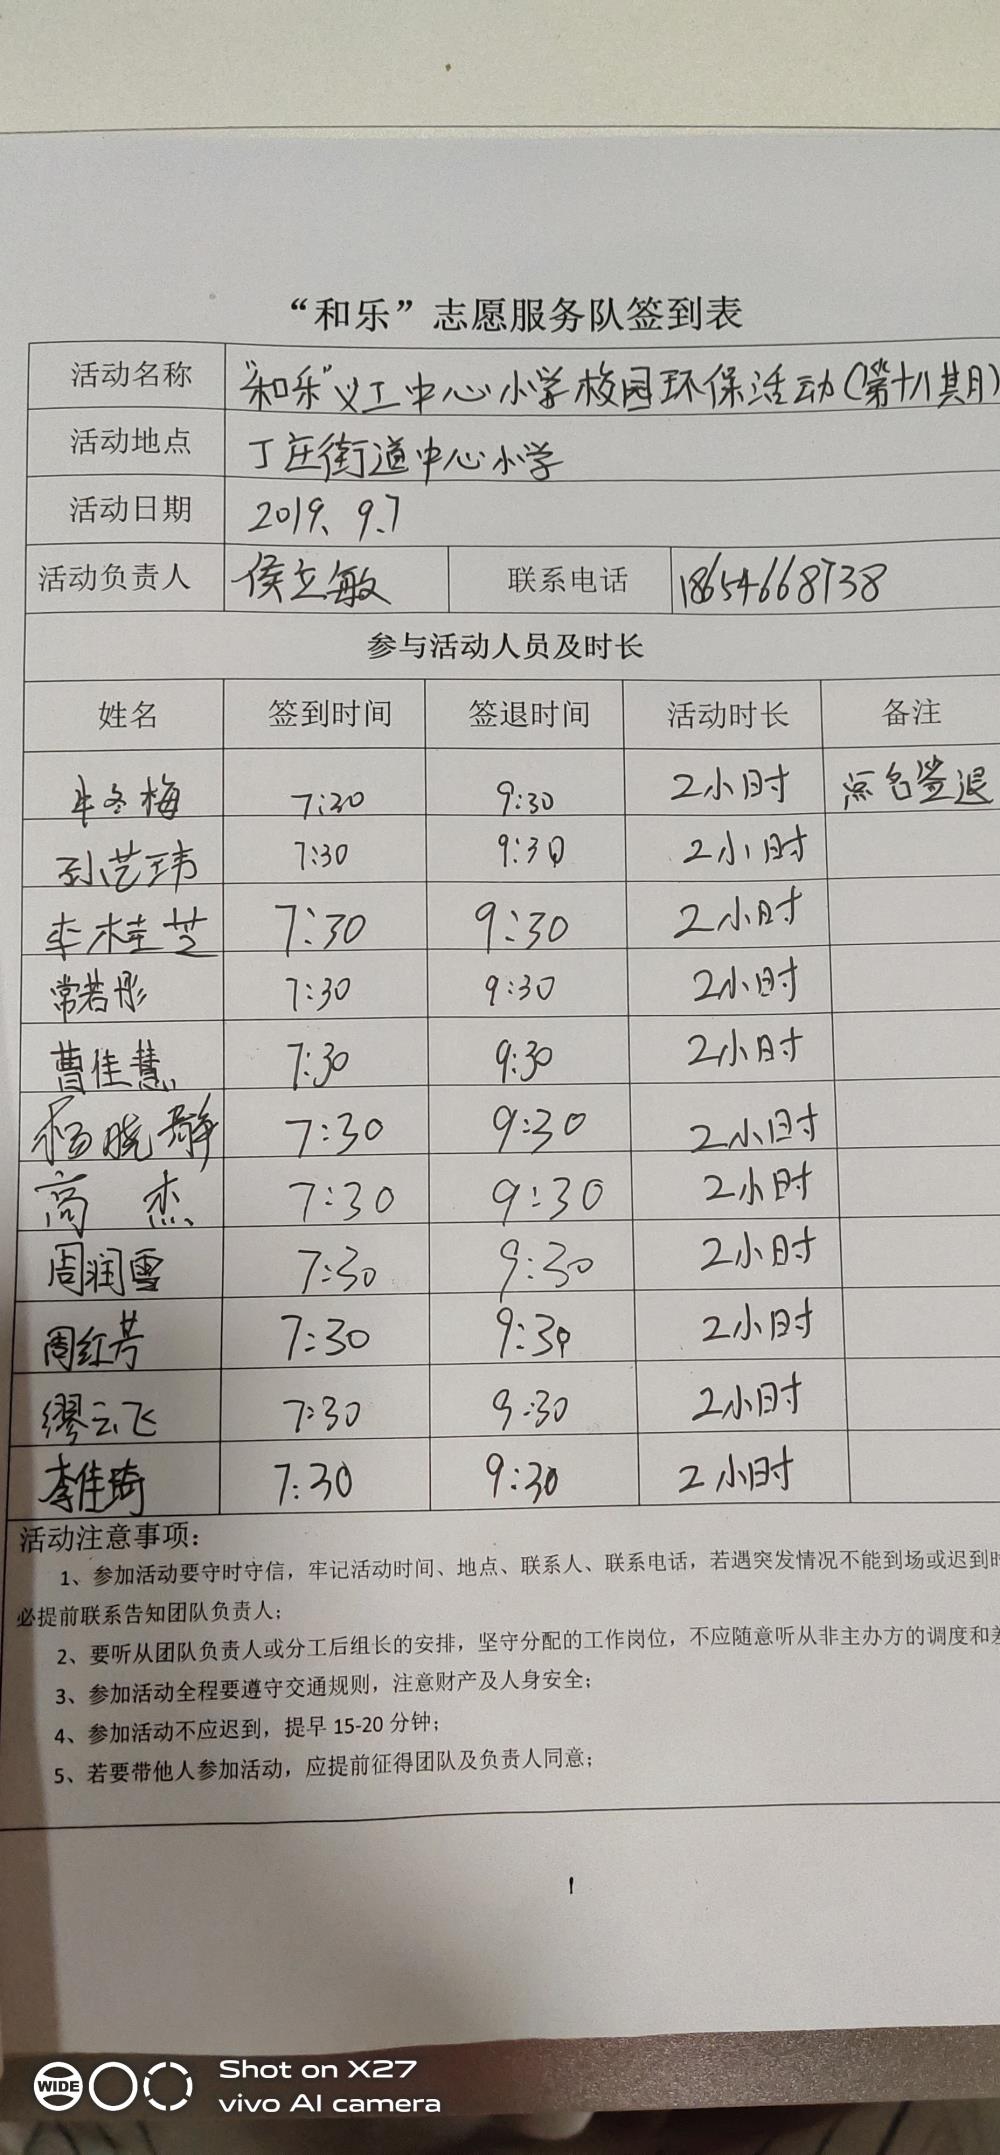 “和乐”志愿服务队签到表
活动名称 “和乐”义工中心小学校园环保活动(第十八期)
活动地点 丁庄街道中心小学
活动日期 2019.9.7
活动负责人 侯立敏 联系电话 18654668738
参与活动人员及时长
姓名 签到时间 签退时间 活动时长 备注
牛冬梅 7:30 9:30 2小时 点名签退
孙艺玮 7:30 9:30 2小时
李桂芝 7:30 9:30 2小时
常若彤 7:30 9:30 2小时
曹佳慧 7:30 9:30 2小时
杨晓静 7:30 9:30 2小时
高杰 7:30 9:30 2小时
周润雪 7:30 9:30 2小时
周红芳 7:30 9:30 2小时
缪云飞 7:30 9:30 2小时
李佳琦 7:30 9:30 2小时
活动注意事项：
1、参加活动要守时守信，牢记活动时间、地点、联系人、联系电话，若遇突发情况不能到场或迟到时
必提前联系告知团队负责人；
2、要听从团队负责人或分工后组长的安排，坚守分配的工作岗位，不应随意听从非主办方的调度和差
3、参加活动全程要遵守交通规则，注意财产及人身安全；
4、参加活动不应迟到，提早 15-20 分钟；
5、若要带他人参加活动，应提前征得团队及负责人同意；
1
WIDE
Shot on X27
vivo AI camera